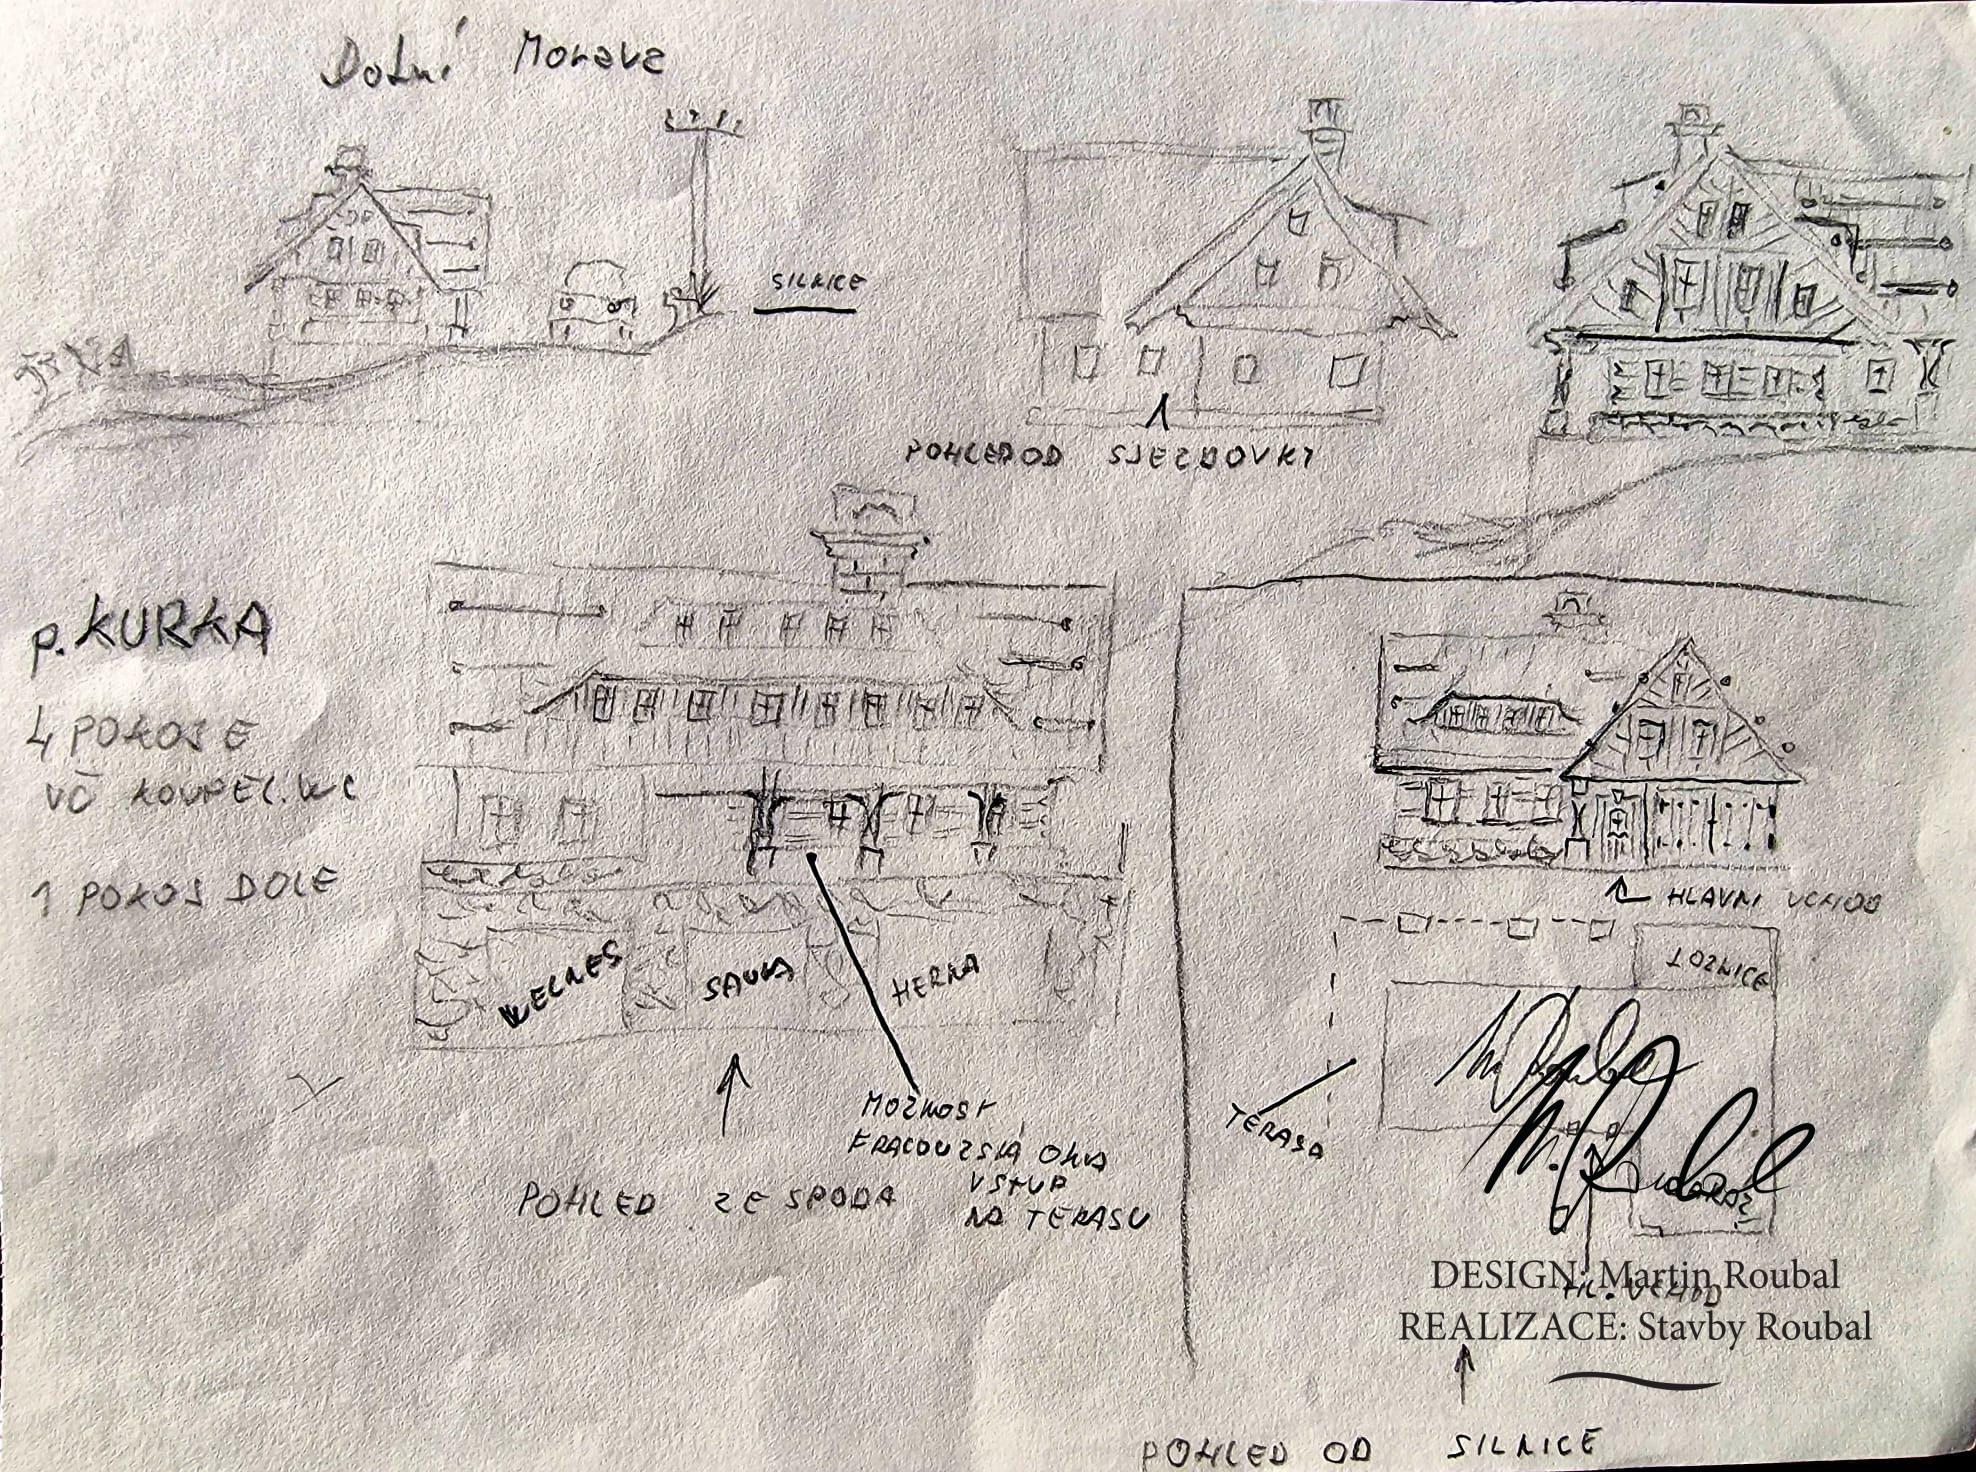 Dolní Morava
SILNICE
POHLED OD SJEZDOVKY
p. KURKA
4 POKOJE
VČ KOUPEL. WC
1 POKOJ DOLE
WELNES
SAUNA
HERNA
MOŽNOST
FRACOUZSKÁ OKNA
VSTUP
NA TERASU
POHLED ZE SPODA
HLAVNI VCHOD
LOŽNICE
TERASA
GARAŽ
M. Roubal
M. Roubal
HL. VCHOD
DESIGN: Martin Roubal
REALIZACE: Stavby Roubal
POHLED OD SILNICE